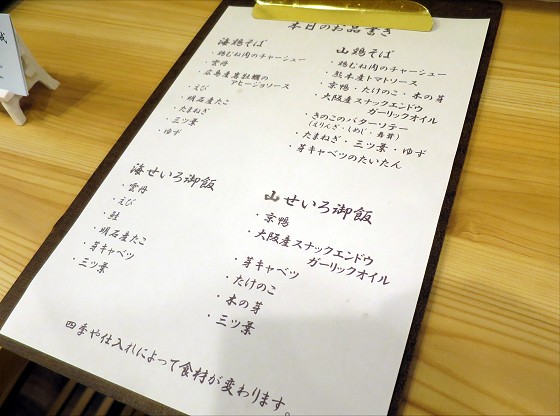 本日のお品書き
海鶏そば
・鶏むね肉のチャーシュー
・雲丹
・広島産真牡蠣の
アヒージョソース
・えび
・明石産たこ
・たまねぎ
・三ツ葉
・ゆず
山鶏そば
・鶏むね肉のチャーシュー
・熊本産トマトソース
・京鴨・たけのこ・木の芽
・大阪産スナックエンドウ
ガーリックオイル
・きのこのバターソテー
(えりんぎ・しめじ・舞茸)
・たまねぎ・三ツ葉・ゆず
・芽キャベツのたいたん
海せいろ御飯
・雲丹
・えび
・鮭
・明石産たこ
・芽キャベツ
・三ツ葉
山せいろ御飯
・京鴨
・大阪産スナックエンドウ
ガーリックオイル
・芽キャベツ
・たけのこ
・木の芽
・三ツ葉
四季や仕入れによって食材が変わります。